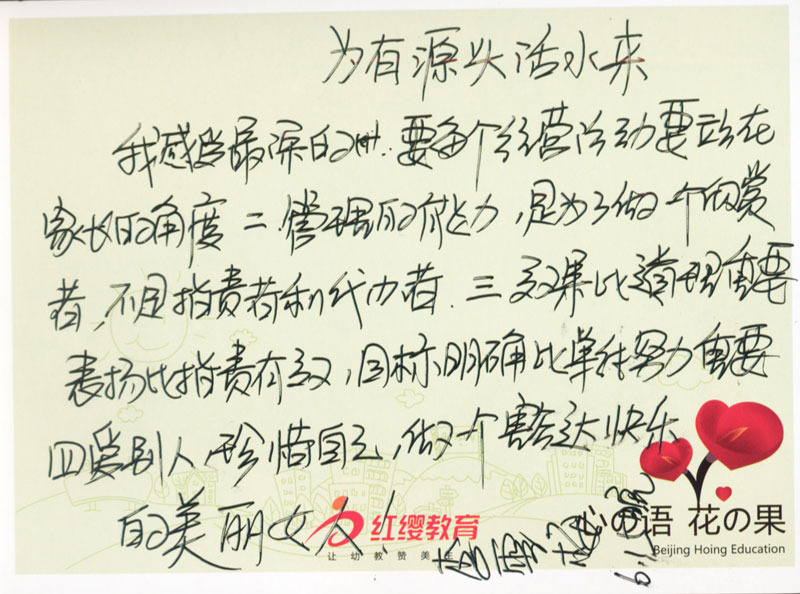 为有源头活水来
我感受最深的一是：要每个经营活动要站在
家长的角度 二.管理的能力，是为了做一个欣赏
者，不是指责者和代办者. 三 效果比道理重要
表扬比指责有效，目标明确比单纯努力重要
四爱别人，珍惜自己，做一个豁达快乐
的美丽女人！
红缨教育
让幼教赞美
心の语 花の果
Beijing Hoing Education